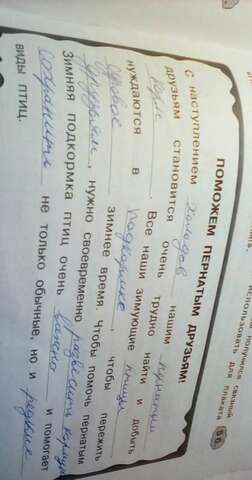 получился связный
использовать для плаката
ПОМОЖЕМ ПЕРНАТЫМ ДРУЗЬЯМ!
С наступлением холодов нашим пернатым
друзьям становится очень трудно найти и добыть
корм. Все наши зимующие птицы
нуждаются в подкормке, чтобы пережить
суровое зимнее время. Чтобы помочь пернатым
друзьям, нужно своевременно развесить
Зимняя подкормка птиц очень важна и помогает
сохранить не только обычные, но и редкие
виды птиц.